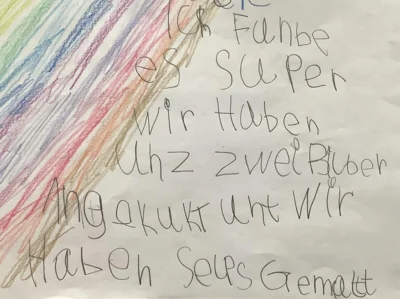 Ich Fanbe
es super
wir Haben
Unz zwei Bilber
Angekukt unt wir
Haben Selps Gemalt